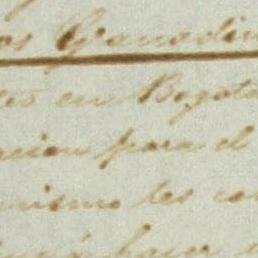 os Granadin
tes en Bogota
cion para el
mismo les con